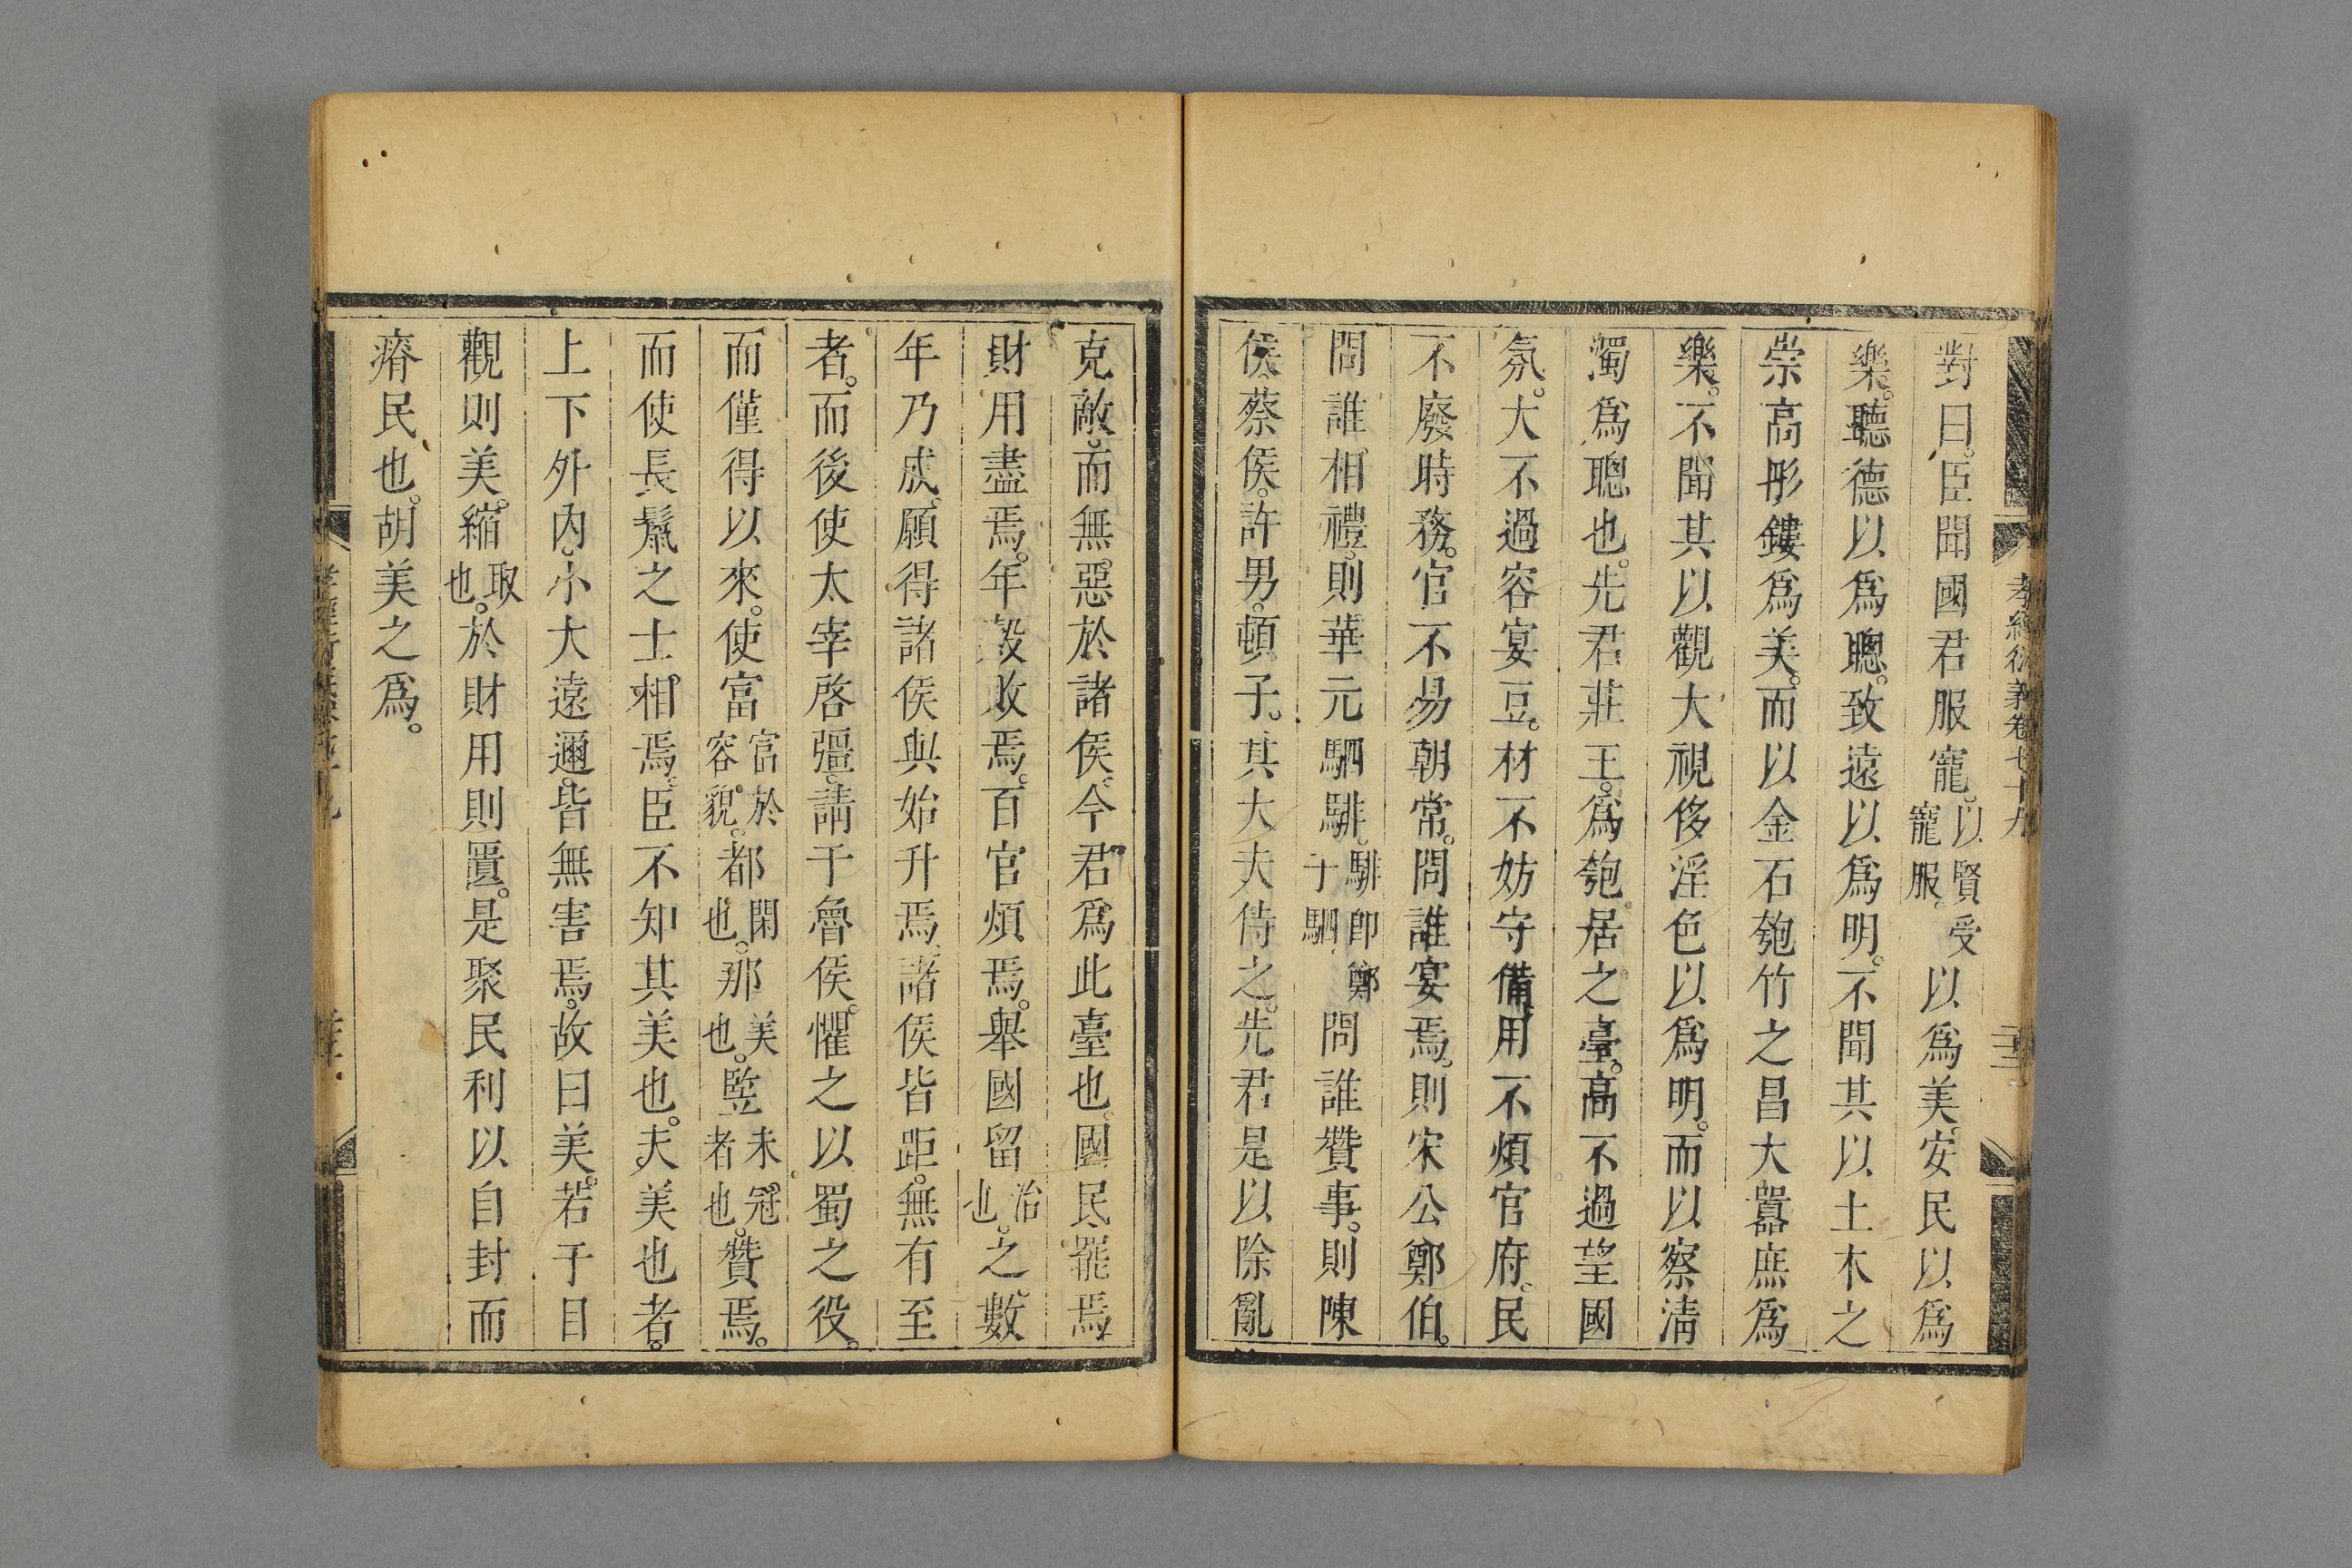 孝經衍義卷七十九
對曰。臣聞國君服寵。以賢受寵服。以爲美。安民以爲
樂。聽德以爲聰。致遠以爲明。不聞其以土木之
崇高彤鏤爲美。而以金石匏竹之昌大囂庶爲
樂。不聞其以觀大視侈淫色以爲明。而以察淸
濁爲聰也。先君莊王。爲匏居之臺。高不過望國
氛。大不過容宴豆。材不妨守備。用不煩官府。民
不廢時務。官不易朝常。問誰宴焉。則宋公鄭伯。
問誰相禮。則華元駟騑。騑卽鄭子駟問誰贊事。則陳
侯蔡侯。許男。頓子。其大夫侍之。先君是以除亂
克敵。而無惡於諸侯。今君爲此臺也。國民罷焉
財用盡焉。年穀敗焉。百官煩焉。舉國留治也。之。數
年乃成。願得諸侯與始升焉。諸侯皆距。無有至
者。而後使太宰啓疆。請于魯侯。懼之以蜀之役。
而僅得以來。使富富於容貌。都閑也。那美也。豎未冠者也。贊焉。
而使長鬣之士相焉。臣不知其美也。夫美也者。
上下外內。小大遠邇。皆無害焉。故曰美。若于目
觀則美。縮取也。於財用則匱。是聚民利以自封而
瘠民也。胡美之爲。